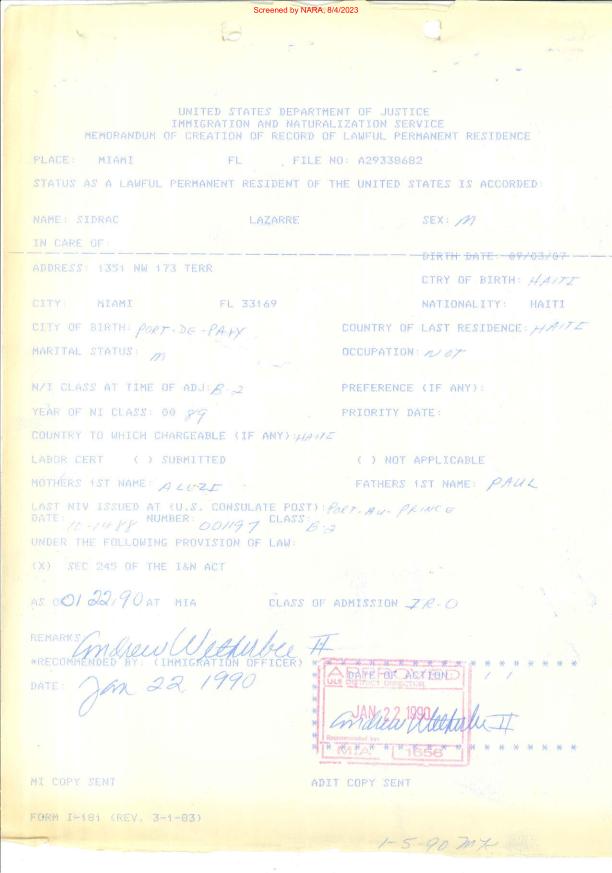 Screened by NARA, 8/4/2023
UNITED STATES DEPARTMENT OF JUSTICE
IMMIGRATION AND NATURALIZATION SERVICE
MEMORANDUM OF CREATION OF RECORD OF LAWFUL PERMANENT RESIDENCE
PLACE: MIAMI FL . FILE NO: A29338682
STATUS AS A LAWFUL PERMANENT RESIDENT OF THE UNITED STATES IS ACCORDED:
NAME: SIDRAC LAZARRE SEX: M
IN CARE OF:
BIRTH DATE: 09/03/07
ADDRESS: 1351 NW 173 TERR
CTRY OF BIRTH: HAITI
CITY: MIAMI FL 33169 NATIONALITY: HAITI
CITY OF BIRTH: PORT-DE-PAIX COUNTRY OF LAST RESIDENCE: HAITI
MARITAL STATUS: M OCCUPATION: NOT
N/I CLASS AT TIME OF ADJ: B-2 PREFERENCE (IF ANY):
YEAR OF NI CLASS: 00 89 PRIORITY DATE:
COUNTRY TO WHICH CHARGEABLE (IF ANY): HAITI
LABOR CERT ( ) SUBMITTED ( ) NOT APPLICABLE
MOTHERS 1ST NAME: FATHERS 1ST NAME: PAUL
LAST NIV ISSUED AT (U.S. CONSULATE POST): PORT-AU-PRINCE
DATE: NUMBER: 001197 CLASS: B-2
UNDER THE FOLLOWING PROVISION OF LAW:
(X) SEC 245 OF THE I&N ACT
AS O 01 22 90 AT MIA CLASS OF ADMISSION IR-0
REMARKS Andrew Wetherbee II
*RECOMMENDED BY: (IMMIGRATION OFFICER)
DATE: Jan 22 1990
DATE OF ACTION
DISTRICT DIRECTOR
JAN 22 1990
Andrew Wetherbee II
Recommended by:
MIA 1656
MI COPY SENT ADIT COPY SENT
FORM I-181 (REV. 3-1-83)
1-5-90 MK